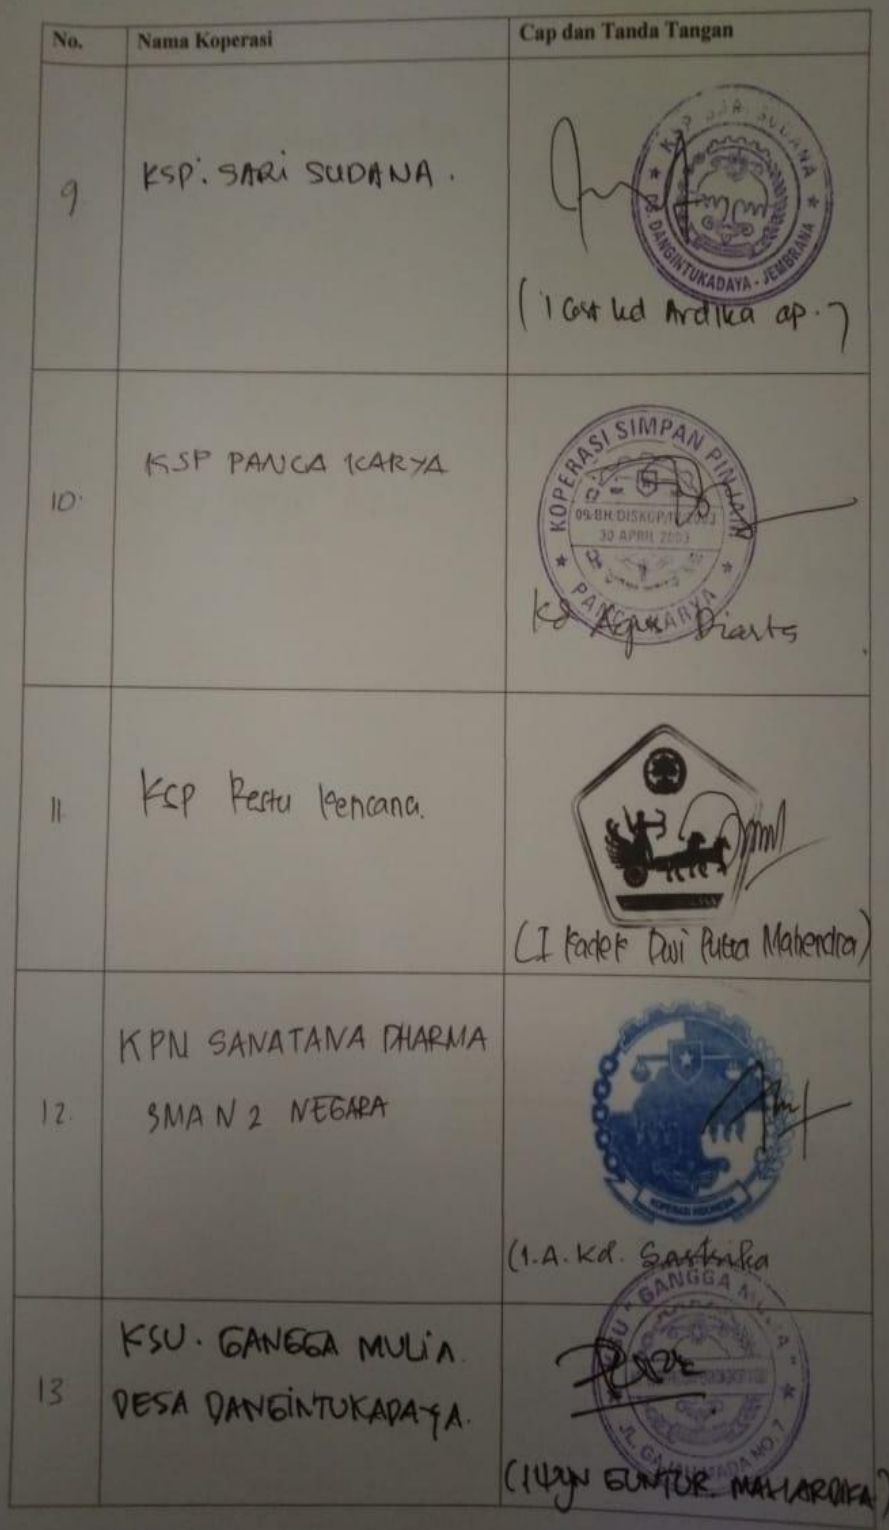 No. Nama Koperasi Cap dan Tanda Tangan
9 KSP. SARI SUDANA.
KSP SARI SUDANA
DS. DANGINTUKADAYA - JEMBRANA
(I Gst Kd Ardika ap.)
10. KSP PANCA KARYA
KOPERASI SIMPAN PINJAM
30 APRIL 2003
PANCA KARYA
Kd Agus Diarta
11. KSP Restu Kencana.
(I Kadek Dwi Putra Mahendra)
12. KPN SANATANA DHARMA
SMA N 2 NEGARA
KOPERASI INDONESIA
(I.A. Kd.
13 KSU. GANGGA MULIA
DESA DANGINTUKADAYA.
KSU "GANGGA MULIA"
JL. GAJAH MADA NO. 7
(I Wyn GUNTUR. MAHARDIKA)